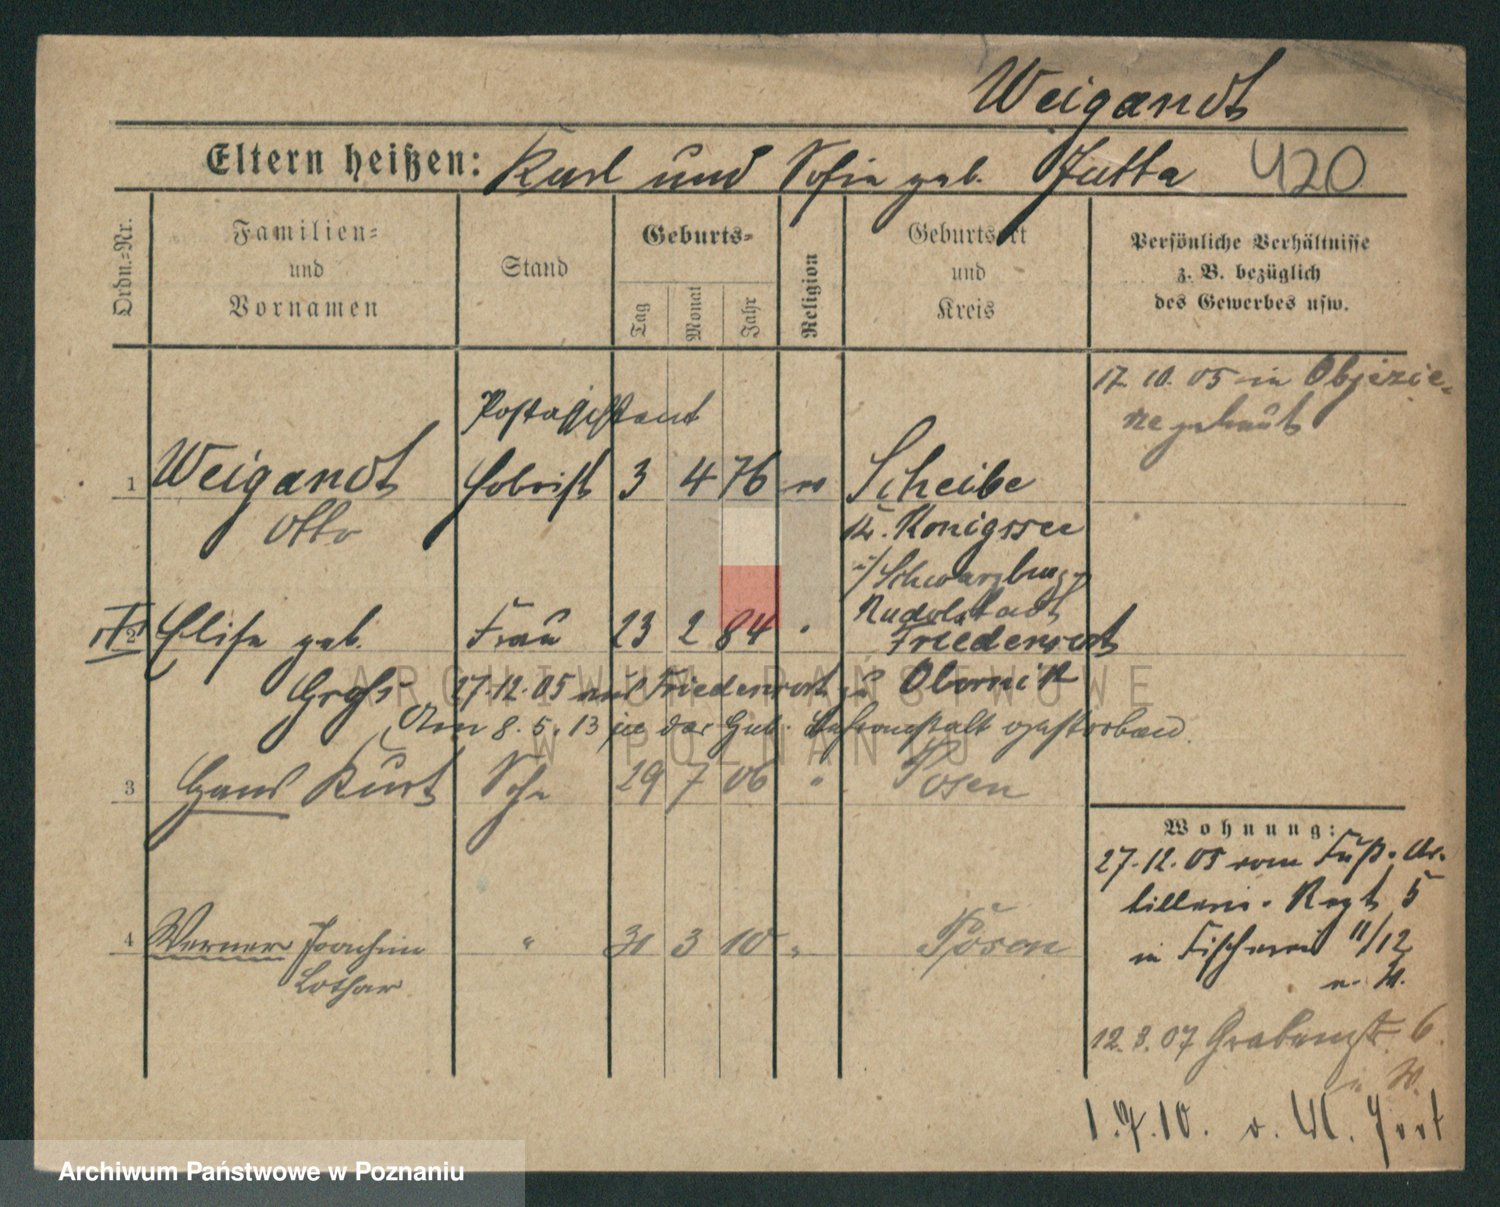 Weigandt
Eltern heißen: Karl und Sofie geb. Jutta 420
Ordn.-Nr.
Familien-
und
Vornamen
Stand
Geburts-
Tag
Monat
Jahr
Religion
Geburtsort
und
Kreis
Persönliche Verhältnisse
z. B. bezüglich
des Gewerbes usw.
17. 10. 05 in Objezie-
rze getraut
Postassistent
1 Weigandt Hobrist 3 4 76 Scheibe
Otto
Kr. Königssee
i/Schwarzburg-
Rudolstadt
2 Elise geb. Frau 23 2 84 " Friedensort
Groß 27.12.05 aus Friedensort zu Obornik
Am 8. 5. 13 in der Heb. Lehranstalt gestorben.
3 Hans Kurt Sohn 29 7 06 " Posen
4 Werner Joachim " 31 3 10 " Posen
Lothar
Wohnung:
27.12.05 vom Fuß-Ar-
tillerie-Regt 5
in Fischerei 11/12
n. W.
12. 3. 07 Grabenstr. 6
n. W.
1. 7. 10. v. W. Fort
ARCHIWUM PAŃSTWOWE
W POZNANIU
Archiwum Państwowe w Poznaniu